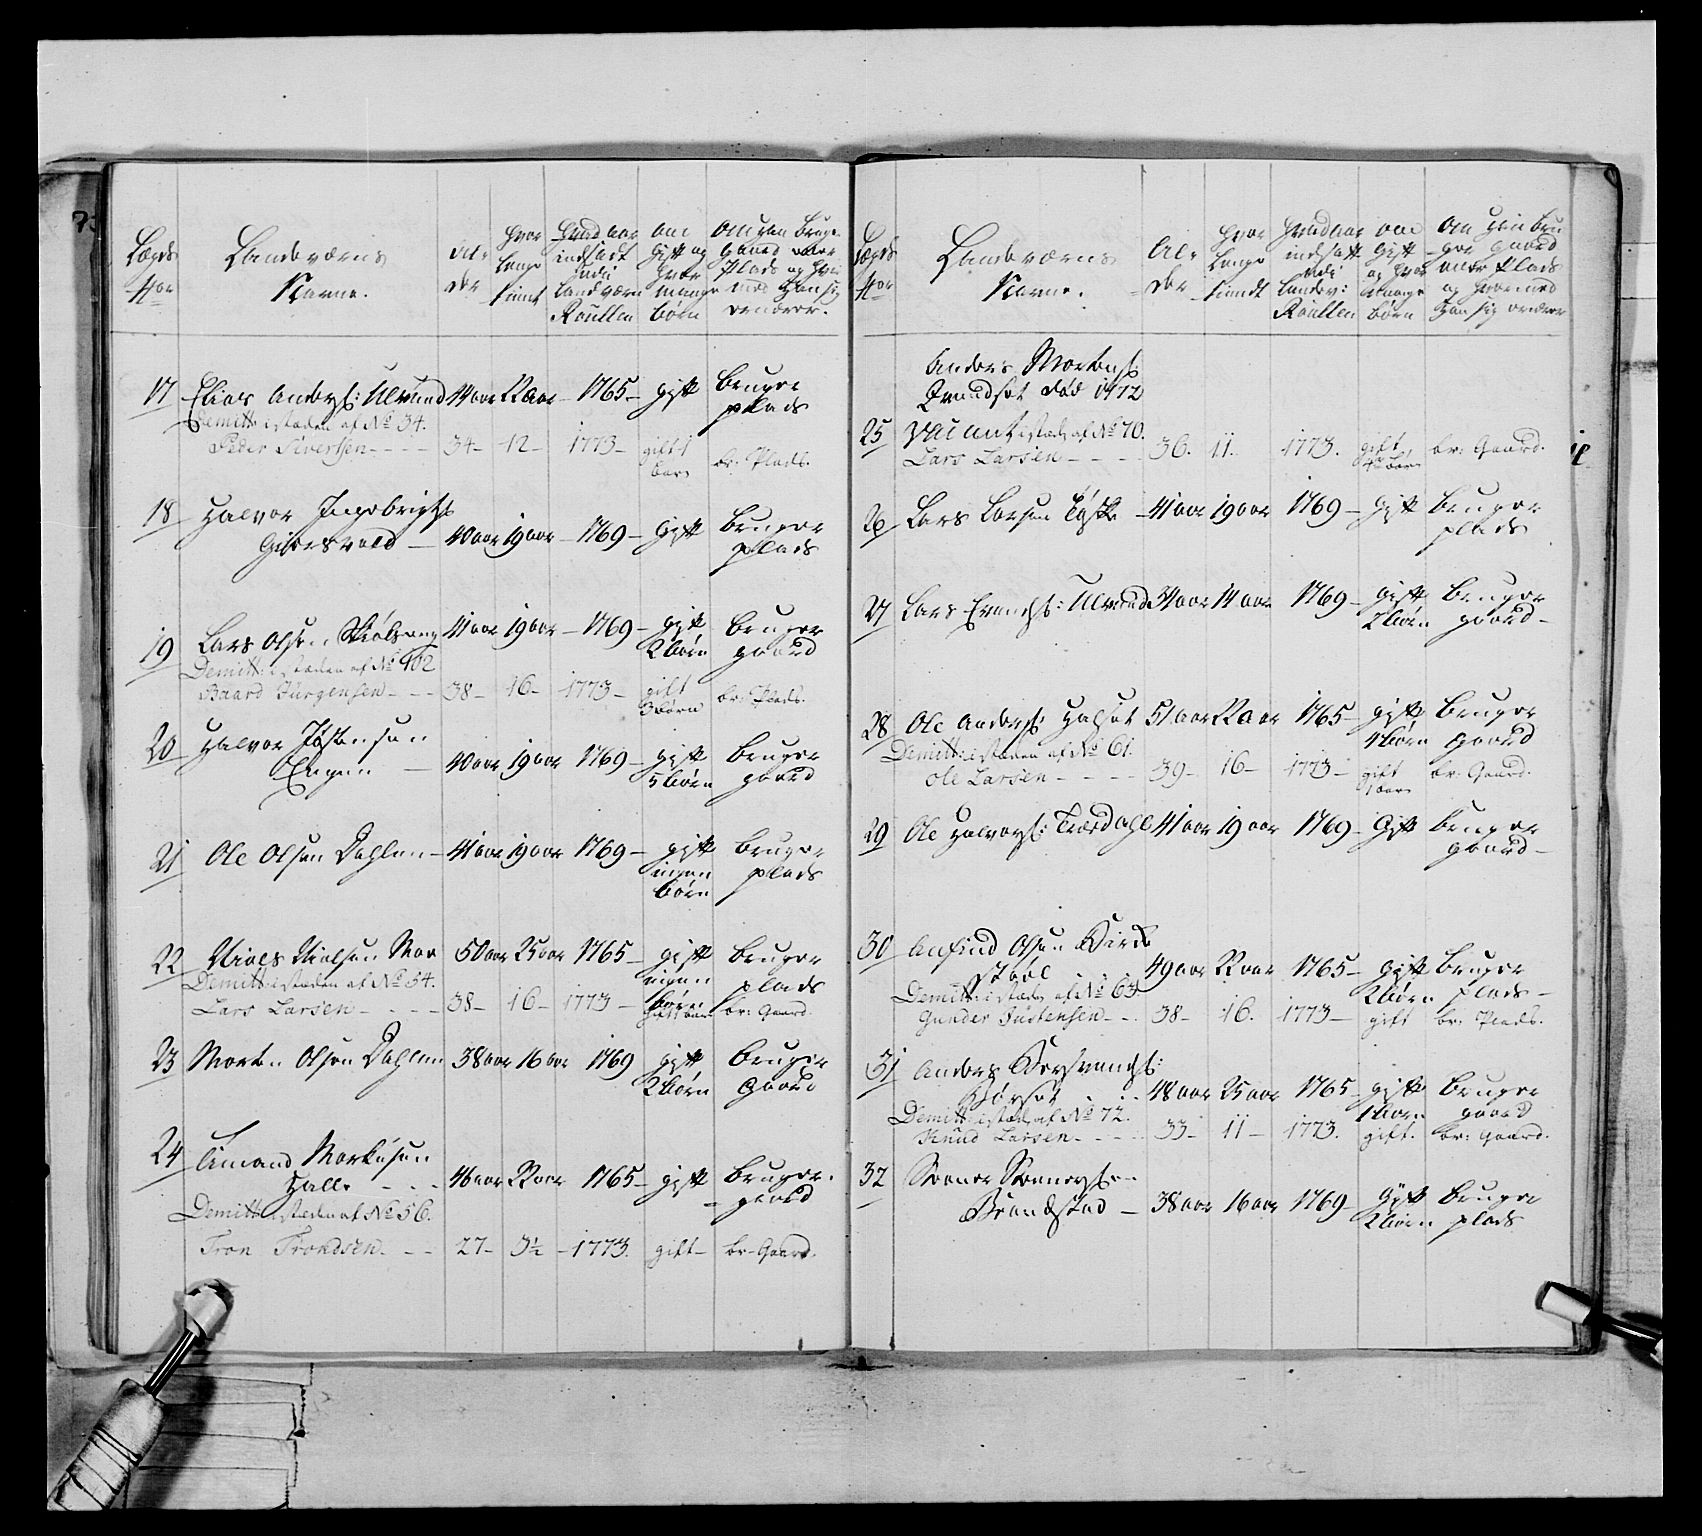 Lægds No
Landeværns Navne.
Alder
Hvor Længe tiendt
Hvad aar indsadt udi Landværn Roullen
om Gift og hvor mange børn
om han bruger Gaard eller Plads og hvormed han sig ernærer.
17 Elias Anders: Ulvund 44 aar 22 aar – 1765 – gift bruger plads
Demitt: i stæden af No 34.
Peder Sivertsen – – – 34 – 12 – 1773 – gift 1 barn br: Plads.
18 Halvor Ingebrigts
– 40 aar 19 aar – 1769 – gift bruger plads
19 Lars Olsen 41 aar 19 aar – 1769 – gift 2 børn bruger gaard
Demitt: i stæden af No 102
Baard Jürgensen – – – 38 – 16 – 1773 – gift 3 børn br: Plads.
20 Halvor Jøstensen
Engen – 40 aar 19 aar 1769 – gift 5 børn bruger gaard
21 Ole Olsen Dahlen – 41 aar 19 aar 1769 – gift ingen børn bruger plads
22 Niels Nielsen Moe 50 aar 25 aar 1765 – gift ingen børn bruger plads
Demitt: i stæden af No 54.
Lars Larsen – – – – 38 – 16 – 1773 – gift 1 barn br: Gaard.
23 Morten Olsen Dahlen 38 aar 16 aar 1769 gift 2 børn bruger gaard
24 Amund Markusen
Halle – – – 46 aar 22 aar 1765 – gift bruger gaard
Demitt: i stæden af No 56.
Tron Trondsen – – – 27 – 3½ – 1773. gift – br: Gaard.
Lægds No
Landeværns Navne.
Alder
Hvor Længe tiendt
Hvad aar indsatt udi Landev: Roullen
om Gift og hvor mange børn
om han bruger gaard eller Plads og hvormed han sig ernærer
Anders Mortens:
død 1772
25 Vacant i stæd: af No 70.
Lars Larsen – – – – 36. 11. 1773. gift 4 børn br: Gaard.
26 Lars Larsen – 41 aar 19 aar 1769 – gift bruger plads
27 Lars Evends: Ulvund 34 aar 14 aar 1769 – gift 2 børn bruger gaard –
28 Ole Anders: Halset 51 aar 22 aar 1765 – gift 4 børn bruger gaard
Demitt: i stæden af No 61.
Ole Larsen – – – – 39 – 16 – 1773 – gift 1 barn br: Gaard.
29 Ole Halvors: 41 aar 19 aar 1769 – Gift bruger gaard –
30 Anfind Olsen
49 aar 22 aar 1765 – gift 2 børn bruger plads –
Demitt: i stæden af No 63
Gunder Justensen – – 38 – 16. 1773 – gift br: Plads.
31 Anders
48 aar 25 aar 1765 gift 1 barn bruger gaard
Demitt: i stæd: af No 72.
Knud Larsen – – – – 33 – 11 – 1773. gift. br: Gaard.
32
Brandstad – 38 aar 16 aar 1769 – gift 2 børn bruger plads